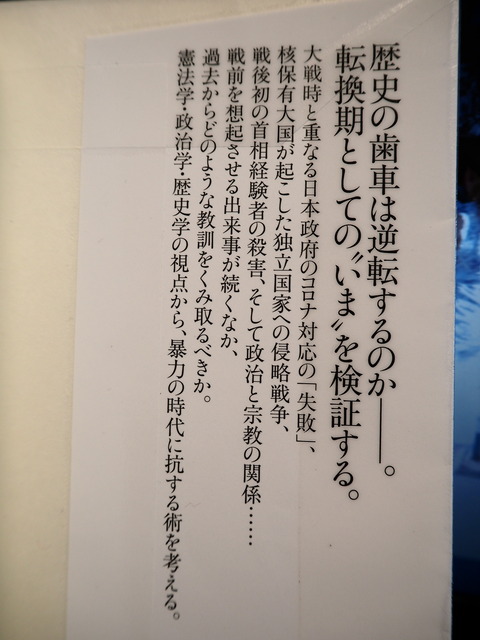 歴史の歯車は逆転するのか――。
転換期としての〝いま〟を検証する。
大戦時と重なる日本政府のコロナ対応の「失敗」、
核保有大国が起こした独立国家への侵略戦争、
戦後初の首相経験者の殺害、そして政治と宗教の関係……
戦前を想起させる出来事が続くなか、
過去からどのような教訓をくみ取るべきか。
憲法学・政治学・歴史学の視点から、暴力の時代に抗する術を考える。